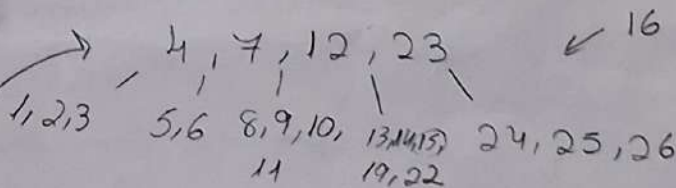 4, 7, 12, 23
16
1, 2, 3
5, 6
8, 9, 10,
11
13, 14, 15,
19, 22
24, 25, 26